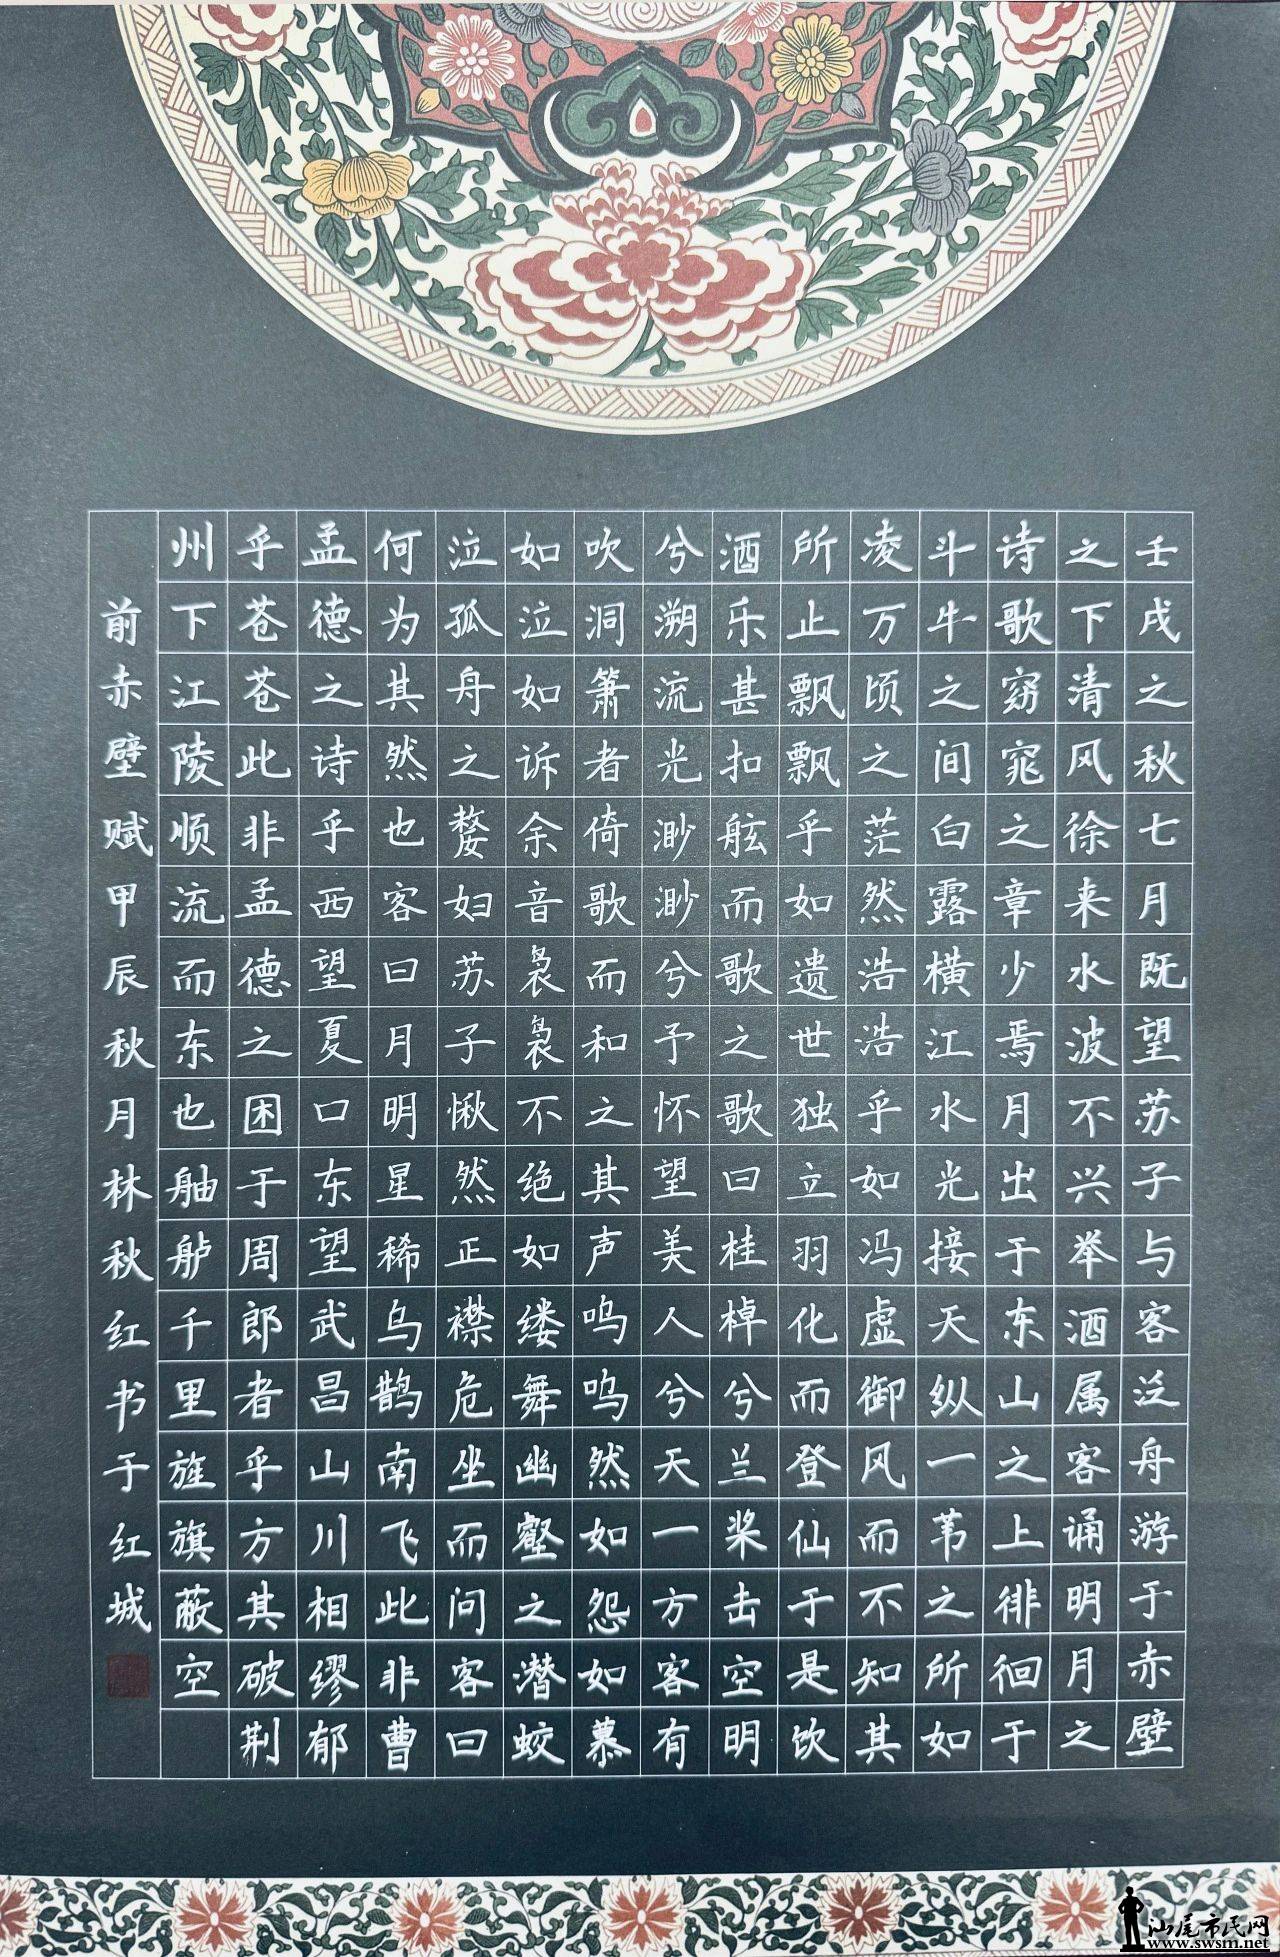 壬戌之秋七月既望苏子与客泛舟游于赤壁
之下清风徐来水波不兴举酒属客诵明月之
诗歌窈窕之章少焉月出于东山之上徘徊于
斗牛之间白露横江水光接天纵一苇之所如
凌万顷之茫然浩浩乎如冯虚御风而不知其
所止飘飘乎如遗世独立羽化而登仙于是饮
酒乐甚扣舷而歌之歌曰桂棹兮兰桨击空明
兮溯流光渺渺兮予怀望美人兮天一方客有
吹洞箫者倚歌而和之其声呜呜然如怨如慕
如泣如诉余音袅袅不绝如缕舞幽壑之潜蛟
泣孤舟之嫠妇苏子愀然正襟危坐而问客曰
何为其然也客曰月明星稀乌鹊南飞此非曹
孟德之诗乎西望夏口东望武昌山川相缪郁
乎苍苍此非孟德之困于周郎者乎方其破荆
州下江陵顺流而东也舳舻千里旌旗蔽空
前赤壁赋甲辰秋月林秋红书于红城
汕尾市民网
www.swsm.net